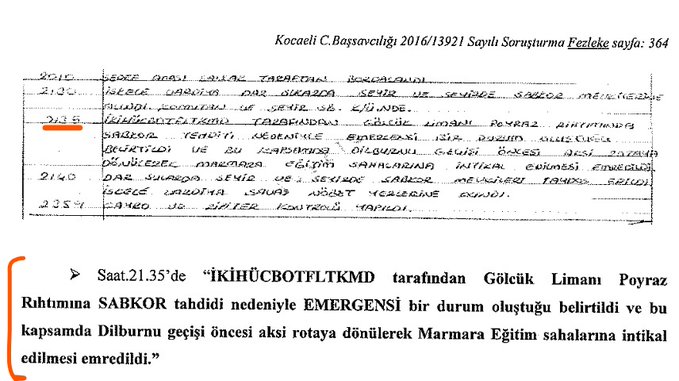 Kocaeli C.Başsavcılığı 2016/13921 Sayılı Soruşturma Fezleke sayfa: 364
2010 SEDEF ADASI TARAFTAN BORDALANDI.
2130 İSKELE VARDİYA DAR SULARDA SEYİR VE SEYİRDE SABKOR MEVKİLERİNE
ALINDI. KOMUTAN VE SEYİR SB. K/ÜNDE.
2135 İKİHÜCBOTFLTKMD TARAFINDAN GÖLCÜK LİMANI POYRAZ RIHTIMINDA
SABKOR TEHDİTİ NEDENİYLE EMERGENSİ BİR DURUM OLUŞTUĞU
BELİRTİLDİ VE BU KAPSAMDA DİLBURNU GEÇİŞİ ÖNCESİ AKSİ ROTAYA
DÖNÜLEREK MARMARA EĞİTİM SAHALARINA İNTİKAL EDİLMESİ EMREDİLDİ.
2140 DAR SULARDA SEYİR VE SEYİRDE SABKOR MEVKİLERİ EDİLDİ
İSKELE VARDİYA SAVAŞ NÖBET YERLERİNE ALINDI.
2359 CAYRO VE RİPİTER KONTROLÜ YAPILDI.
➢ Saat.21.35’de “İKİHÜCBOTFLTKMD tarafından Gölcük Limanı Poyraz
Rıhtımına SABKOR tahdidi nedeniyle EMERGENSİ bir durum oluştuğu belirtildi ve bu
kapsamda Dilburnu geçişi öncesi aksi rotaya dönülerek Marmara Eğitim sahalarına intikal
edilmesi emredildi.”